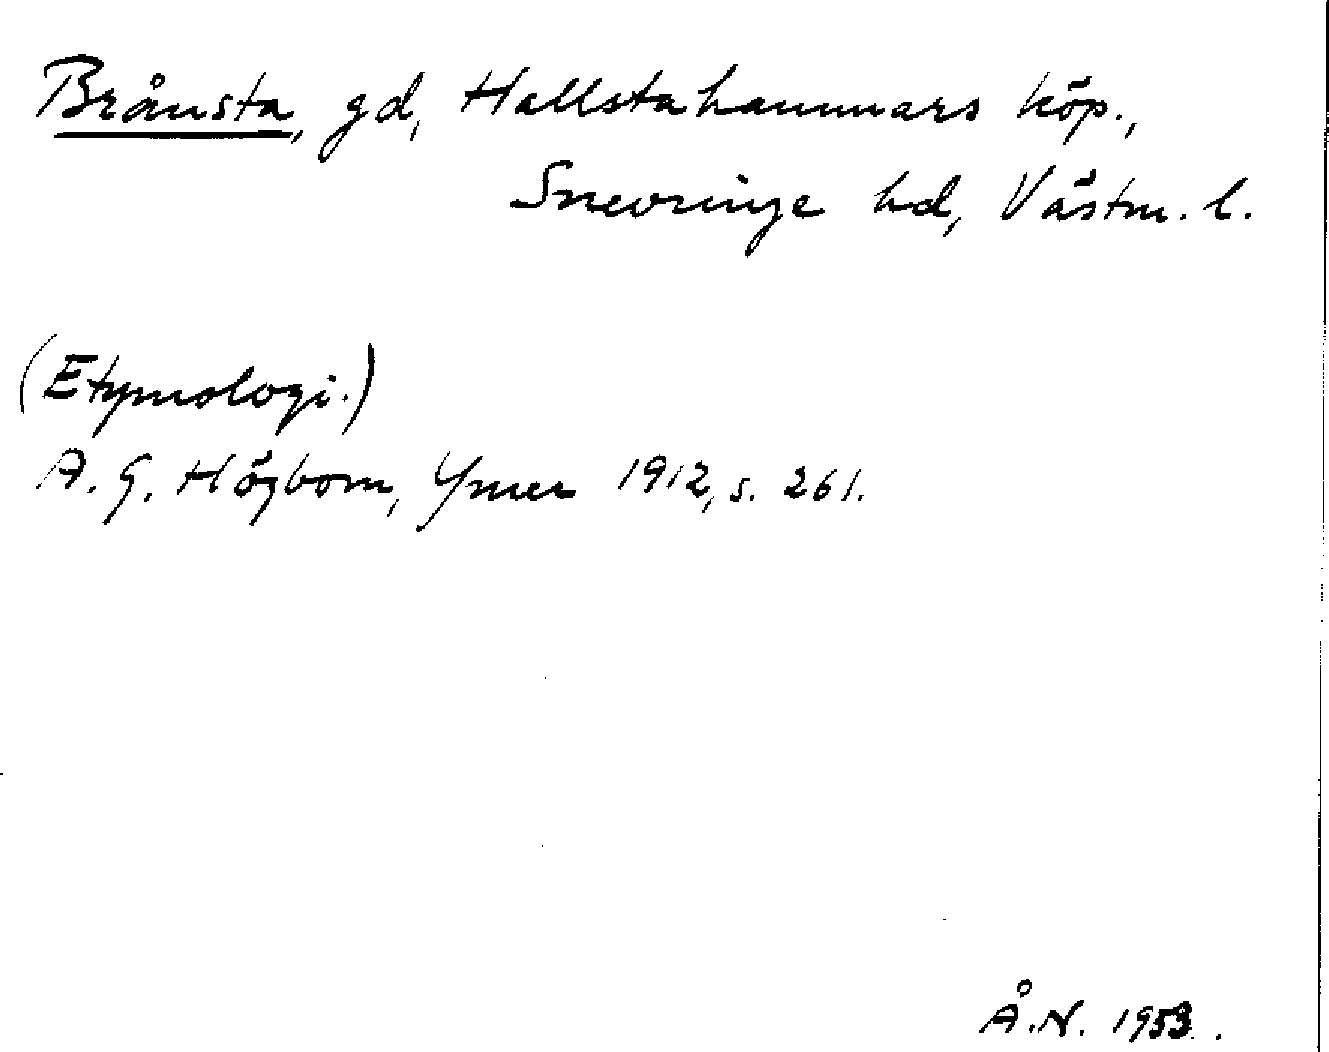 Brånsta, gd, Hallstahammars köp.,
Snevringe hd, Västm. l.
(Etymologi.)
A. G. Högbom, Ymer 1912, s. 261.
Å.N. 1953.